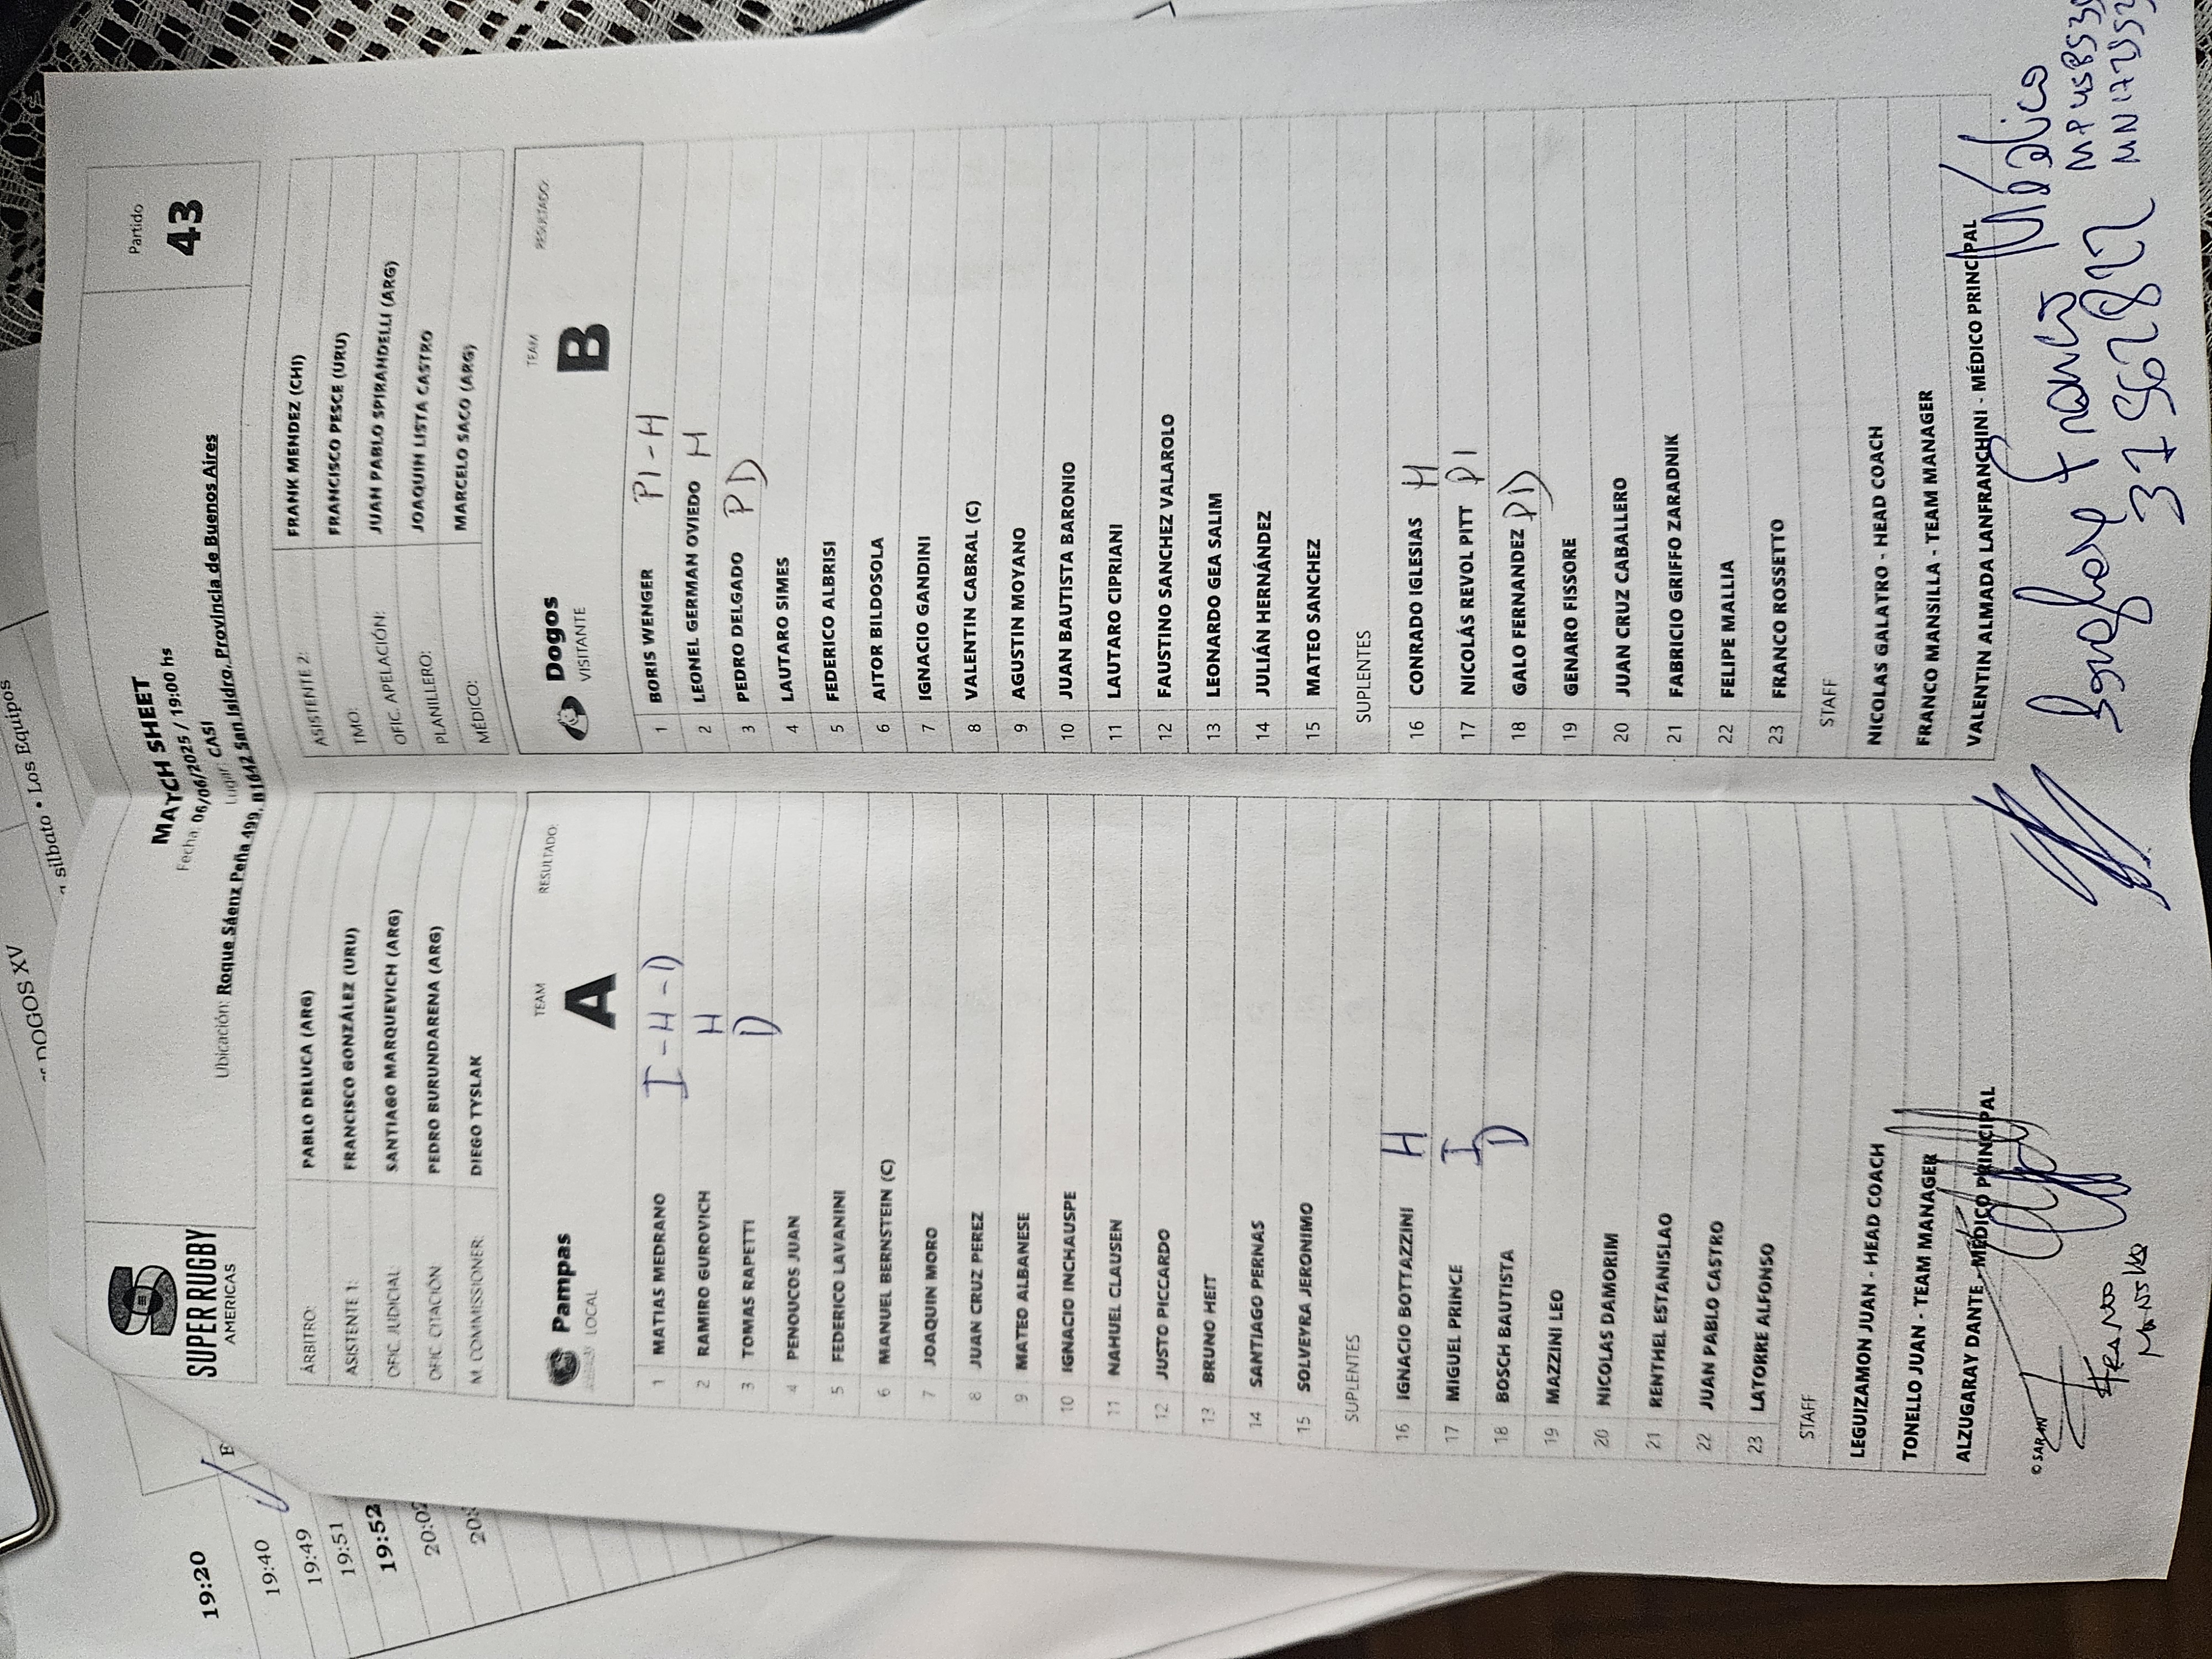 SUPER RUGBY
AMERICAS
MATCH SHEET
Fecha: 06/06/2025 / 19:00 hs
Lugar: CASI
Ubicación: Roque Sáenz Peña 499, B1642 San Isidro, Provincia de Buenos Aires
Partido
43
ÁRBITRO: PABLO DELUCA (ARG)
ASISTENTE 1: FRANCISCO GONZÁLEZ (URU)
OFIC. JUDICIAL: SANTIAGO MARQUEVICH (ARG)
OFIC CITACIÓN PEDRO BURUNDARENA (ARG)
M. COMMISSIONER: DIEGO TYSLAK
ASISTENTE 2: FRANK MENDEZ (CHI)
TMO: FRANCISCO PESCE (URU)
OFIC. APELACIÓN: JUAN PABLO SPIRANDELLI (ARG)
PLANILLERO: JOAQUIN LISTA CASTRO
MÉDICO: MARCELO SACO (ARG)
Pampas
LOCAL
TEAM
A
RESULTADO:
1 MATIAS MEDRANO I - H - D
2 RAMIRO GUROVICH H
3 TOMAS RAPETTI D
4 PENOUCOS JUAN
5 FEDERICO LAVANINI
6 MANUEL BERNSTEIN (C)
7 JOAQUIN MORO
8 JUAN CRUZ PEREZ
9 MATEO ALBANESE
10 IGNACIO INCHAUSPE
11 NAHUEL CLAUSEN
12 JUSTO PICCARDO
13 BRUNO HEIT
14 SANTIAGO PERNAS
15 SOLVEYRA JERONIMO
SUPLENTES
16 IGNACIO BOTTAZZINI H
17 MIGUEL PRINCE I
18 BOSCH BAUTISTA D
19 MAZZINI LEO
20 NICOLAS DAMORIM
21 RENTHEL ESTANISLAO
22 JUAN PABLO CASTRO
23 LATORRE ALFONSO
STAFF
LEGUIZAMON JUAN - HEAD COACH
TONELLO JUAN - TEAM MANAGER
ALZUGARAY DANTE - MÉDICO PRINCIPAL
Dogos
VISITANTE
TEAM
B
RESULTADO:
1 BORIS WENGER PI - H
2 LEONEL GERMAN OVIEDO H
3 PEDRO DELGADO PD
4 LAUTARO SIMES
5 FEDERICO ALBRISI
6 AITOR BILDOSOLA
7 IGNACIO GANDINI
8 VALENTIN CABRAL (C)
9 AGUSTIN MOYANO
10 JUAN BAUTISTA BARONIO
11 LAUTARO CIPRIANI
12 FAUSTINO SANCHEZ VALAROLO
13 LEONARDO GEA SALIM
14 JULIÁN HERNÁNDEZ
15 MATEO SANCHEZ
SUPLENTES
16 CONRADO IGLESIAS H
17 NICOLÁS REVOL PITT PI
18 GALO FERNANDEZ PD
19 GENARO FISSORE
20 JUAN CRUZ CABALLERO
21 FABRICIO GRIFFO ZARADNIK
22 FELIPE MALLIA
23 FRANCO ROSSETTO
STAFF
NICOLAS GALATRO - HEAD COACH
FRANCO MANSILLA - TEAM MANAGER
VALENTIN ALMADA LANFRANCHINI - MÉDICO PRINCIPAL
© SAR
Médico
37562822
silbato • Los Equipos
DOGOS XV
19:20
19:40
19:49
19:51
19:52